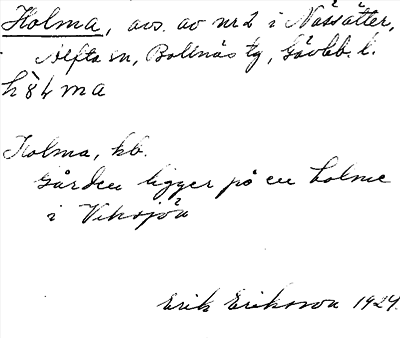 Holma, avs. av nr 2 i Nässätter,
Alfta sn, Bollnäs tg, Gävleb. l.
Holma, kb.
Gården ligger på en holme
i Viksjön
Erik Eriksson 1924.